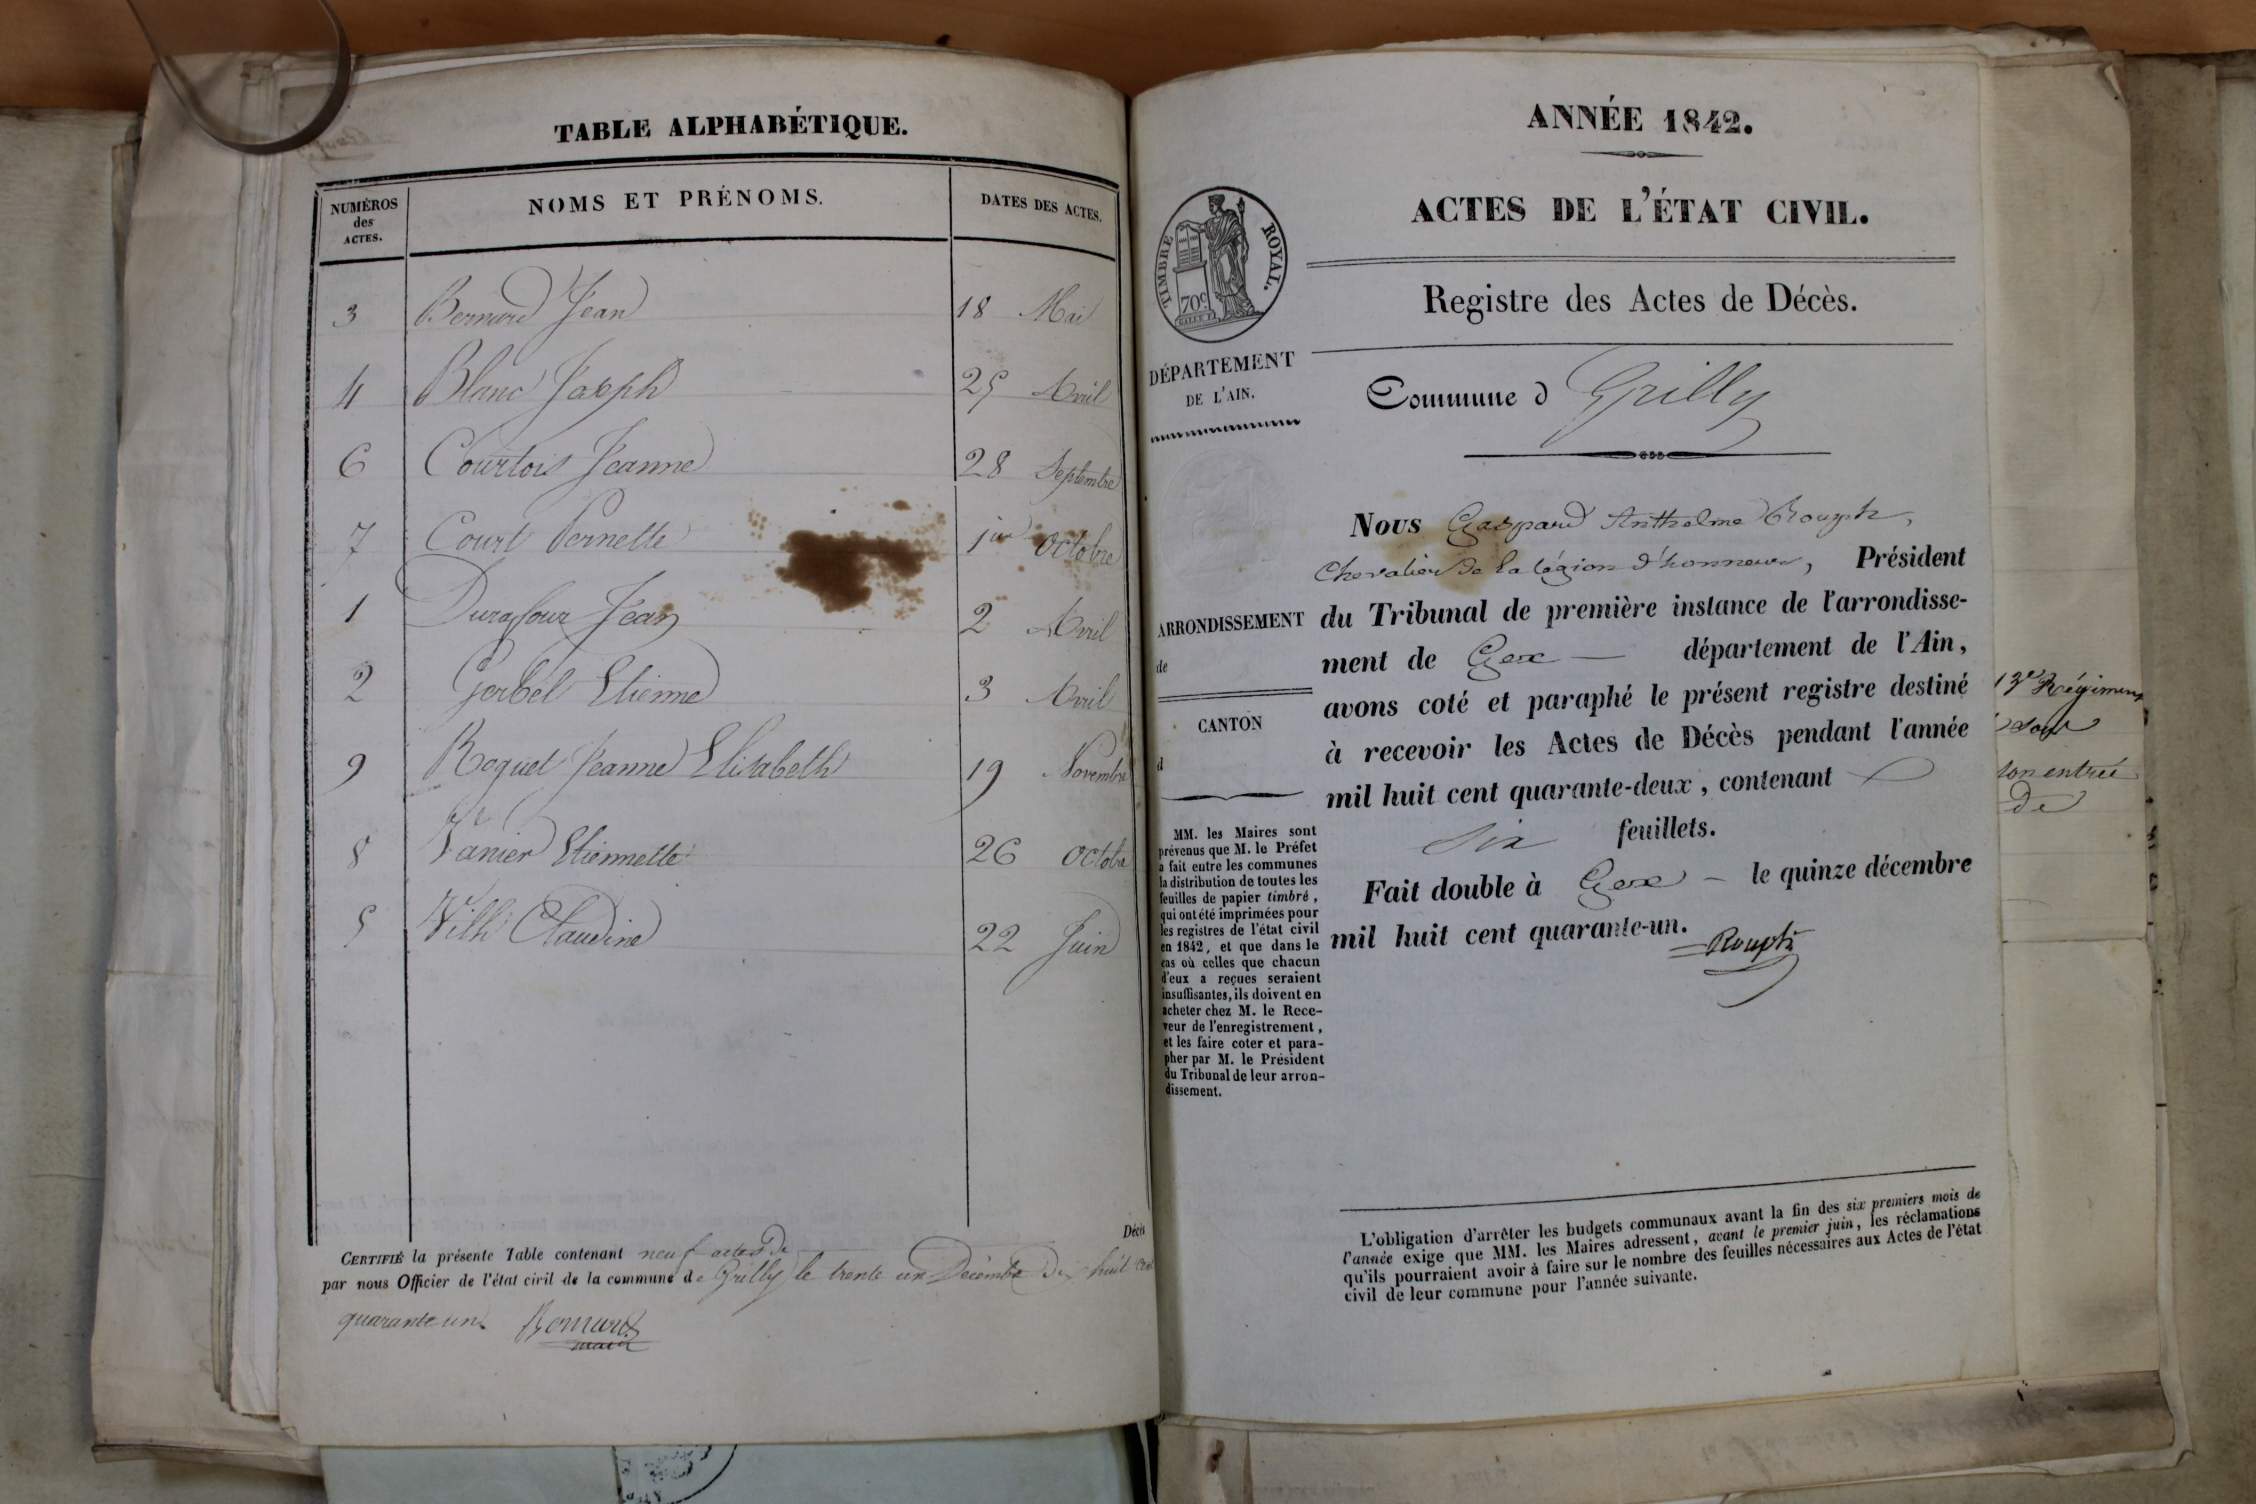 TABLE ALPHABÉTIQUE.
NUMÉROS des ACTES. NOMS ET PRÉNOMS. DATES DES ACTES.
3 Bernard Jean 18 Mai
4 Blanc Joseph 25 Avril
6 Courtois Jeanne 28 Septembre
7 Court Pernette 1er Octobre
1 Durafour Jean 2 Avril
2 Gerbel Etienne 3 Avril
9 Roquet Jeanne Elisabeth 19 Novembre
8 Vanier Etiennette 26 Octobre
5 Wilh Claudine 22 Juin
Décès
CERTIFIÉ la présente Table contenant neuf actes de
par nous Officier de l'état civil de la commune de Grilly le trente un Décembre dix huit cent
quarante un.
maire
ANNÉE 1842.
ACTES DE L'ÉTAT CIVIL.
Registre des Actes de Décès.
TIMBRE ROYAL.
70c
DÉPARTEMENT
DE L'AIN.
Commune d Grilly
ARRONDISSEMENT
de
CANTON
d
MM. les Maires sont
prévenus que M. le Préfet
a fait entre les communes
la distribution de toutes les
feuilles de papier timbré,
qui ont été imprimées pour
les registres de l'état civil
en 1842, et que dans le
cas où celles que chacun
d'eux a reçues seraient
insuffisantes, ils doivent en
acheter chez M. le Rece-
veur de l'enregistrement,
et les faire coter et para-
pher par M. le Président
du Tribunal de leur arron-
dissement.
Nous Gaspard Anthelme Rouph,
Chevalier de la légion d'honneur, Président
du Tribunal de première instance de l'arrondisse-
ment de Gex — département de l'Ain,
avons coté et paraphé le présent registre destiné
à recevoir les Actes de Décès pendant l'année
mil huit cent quarante-deux, contenant
six feuillets.
Fait double à Gex — le quinze décembre
mil huit cent quarante-un.
Rouph
L'obligation d'arrêter les budgets communaux avant la fin des six premiers mois de
l'année exige que MM. les Maires adressent, avant le premier juin, les réclamations
qu'ils pourraient avoir à faire sur le nombre des feuilles nécessaires aux Actes de l'état
civil de leur commune pour l'année suivante.
Régiment
son entrée
de